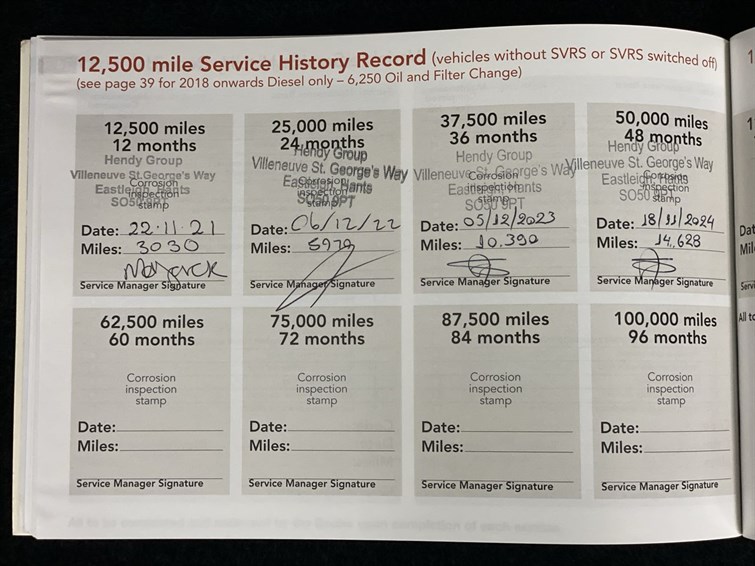 12,500 mile Service History Record (vehicles without SVRS or SVRS switched off)
(see page 39 for 2018 onwards Diesel only – 6,250 Oil and Filter Change)
12,500 miles
12 months
Hendy Group
Villeneuve St. George's Way
Eastleigh, Hants
SO50 9PT
Corrosion
inspection
stamp
Date: 22.11.21
Miles: 3030
Service Manager Signature
25,000 miles
24 months
Hendy Group
Villeneuve St. George's Way
Eastleigh, Hants
SO50 9PT
Corrosion
inspection
stamp
Date: 06/12/22
Miles: 6979
Service Manager Signature
37,500 miles
36 months
Hendy Group
Villeneuve St. George's Way
Eastleigh, Hants
SO50 9PT
Corrosion
inspection
stamp
Date: 05/12/2023
Miles: 10.390
Service Manager Signature
50,000 miles
48 months
Hendy Group
Villeneuve St. George's Way
Eastleigh, Hants
SO50 9PT
Corrosion
inspection
stamp
Date: 18/11/2024
Miles: 14,628
Service Manager Signature
62,500 miles
60 months
Corrosion
inspection
stamp
Date:
Miles:
Service Manager Signature
75,000 miles
72 months
Corrosion
inspection
stamp
Date:
Miles:
Service Manager Signature
87,500 miles
84 months
Corrosion
inspection
stamp
Date:
Miles:
Service Manager Signature
100,000 miles
96 months
Corrosion
inspection
stamp
Date:
Miles:
Service Manager Signature